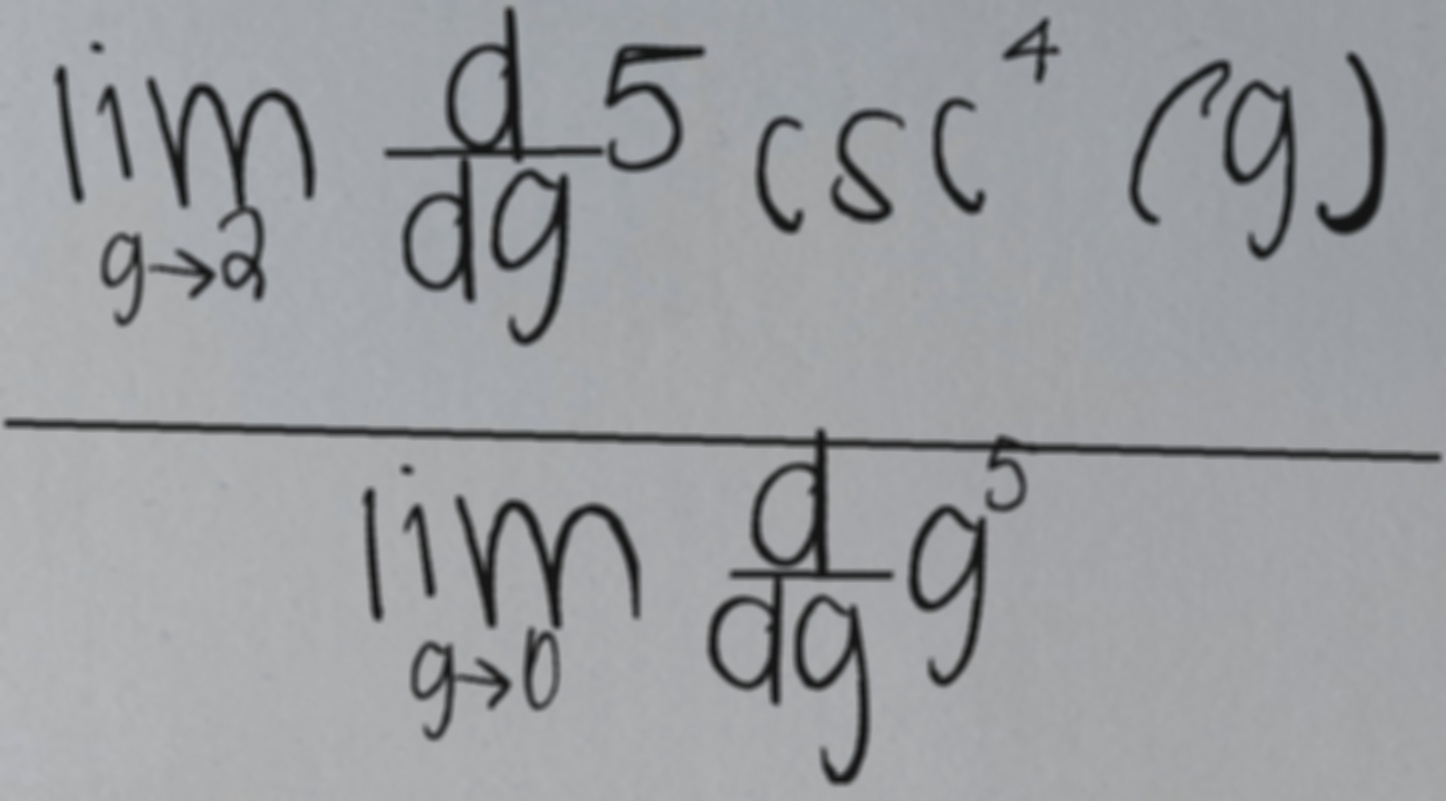 \frac{\lim_{g \to 2} \frac{d}{dg} 5 \csc^4 (g)}{\lim_{g \to 0} \frac{d}{dg} g^5}